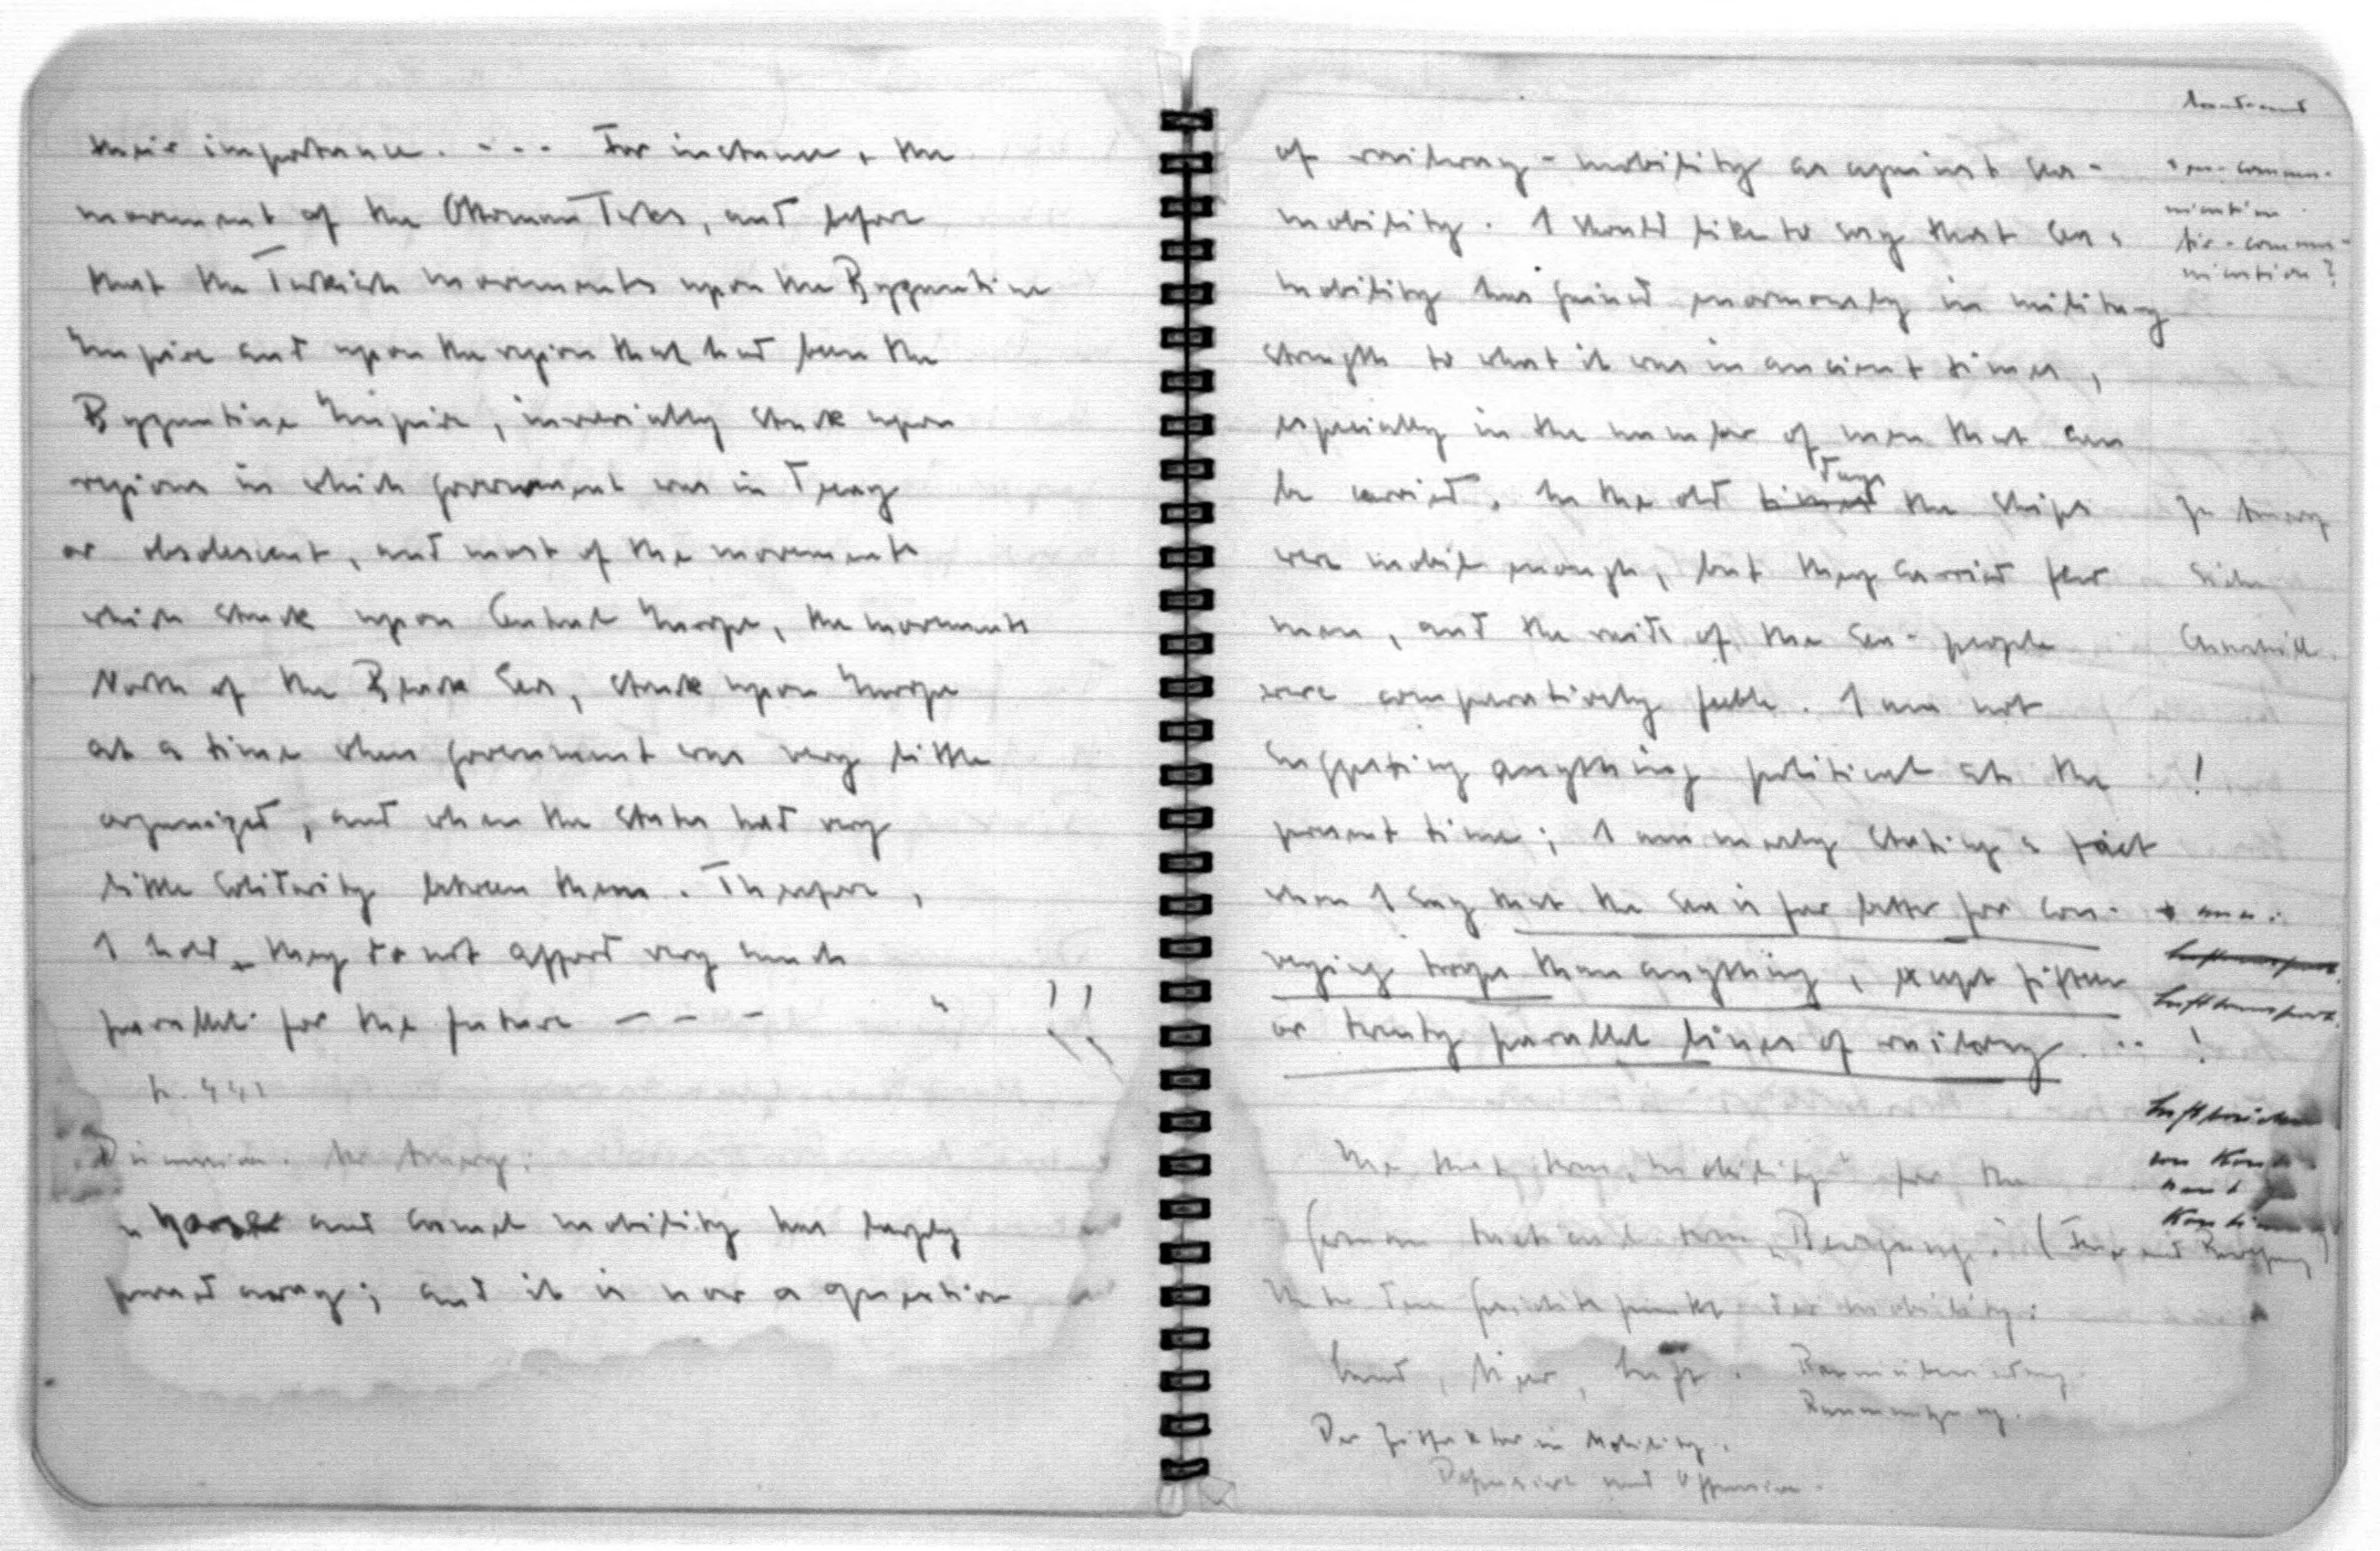 their importance. - - - For instance, the
movement of the Ottoman Turks, and before
that the Turkish movements upon the Byzantine
Empire and upon the region that had been the
Byzantine Empire, invariably struck upon
regions in which government was in decay
or obsolescent, and most of the movements
which struck upon Central Europe, the movements
North of the Black Sea, struck upon Europe
at a time when government was very little
organized, and when the States had very
little solidarity between them. Therefore,
I hold, they do not afford very much
parallel for the future - - - "
p. 441
Discussion. Mr Amery:
" horse and camel mobility has largely
passed away; and it is now a question
of railway-mobility as against sea-
mobility. I should like to say that sea-
mobility has gained enormously in military
strength to what it was in ancient times,
especially in the number of men that can
be carried. In the old days the ships
were mobile enough, but they carried few
men, and the raids of the sea-people
were comparatively feeble. I am not
suggesting anything political at the
present time; I am merely stating a fact
when I say that the sea is far better for con-
veying troops than anything, except fifteen
or twenty parallel lines of railway. ..
sea-commu-
nication
air-commu-
nication?
Zu Amery
Churchill
!
Lufttransport.
!
Use that term "mobility" for the
german tactical term "Bewegung". (Feuer und Bewegung)
Unter dem Gesichtspunkt der mobility:
Land, Meer, Luft. Raumüberwindung.
Der Zeitfaktor in Mobility.
Defensive und Offensive.